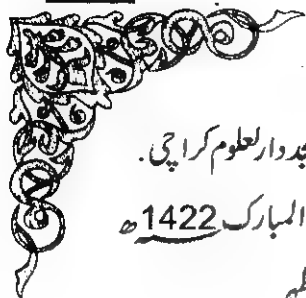 جد دار لعلوم کراچی.
المبارک 1422ھ